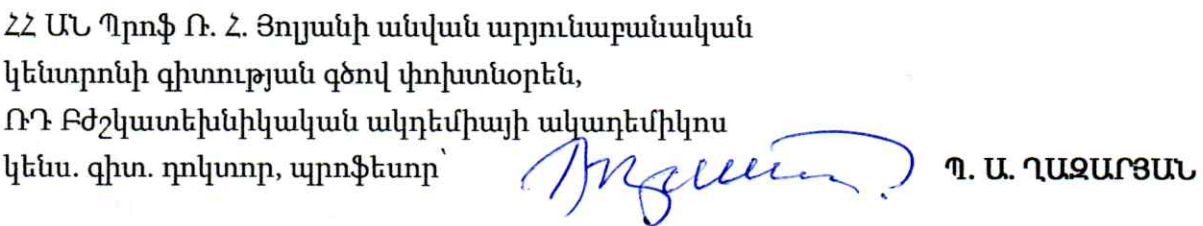 ՀՀ ԱՆ Պրոֆ Ռ. Հ. Յոլյանի անվան արյունաբանական
կենտրոնի գիտության գծով փոխտնօրեն,
ՌԴ Բժշկատեխնիկական ակդեմիայի ակադեմիկոս
կենս. գիտ. դոկտոր, պրոֆեսոր՝ Պ. Ա. ՂԱԶԱՐՅԱՆ